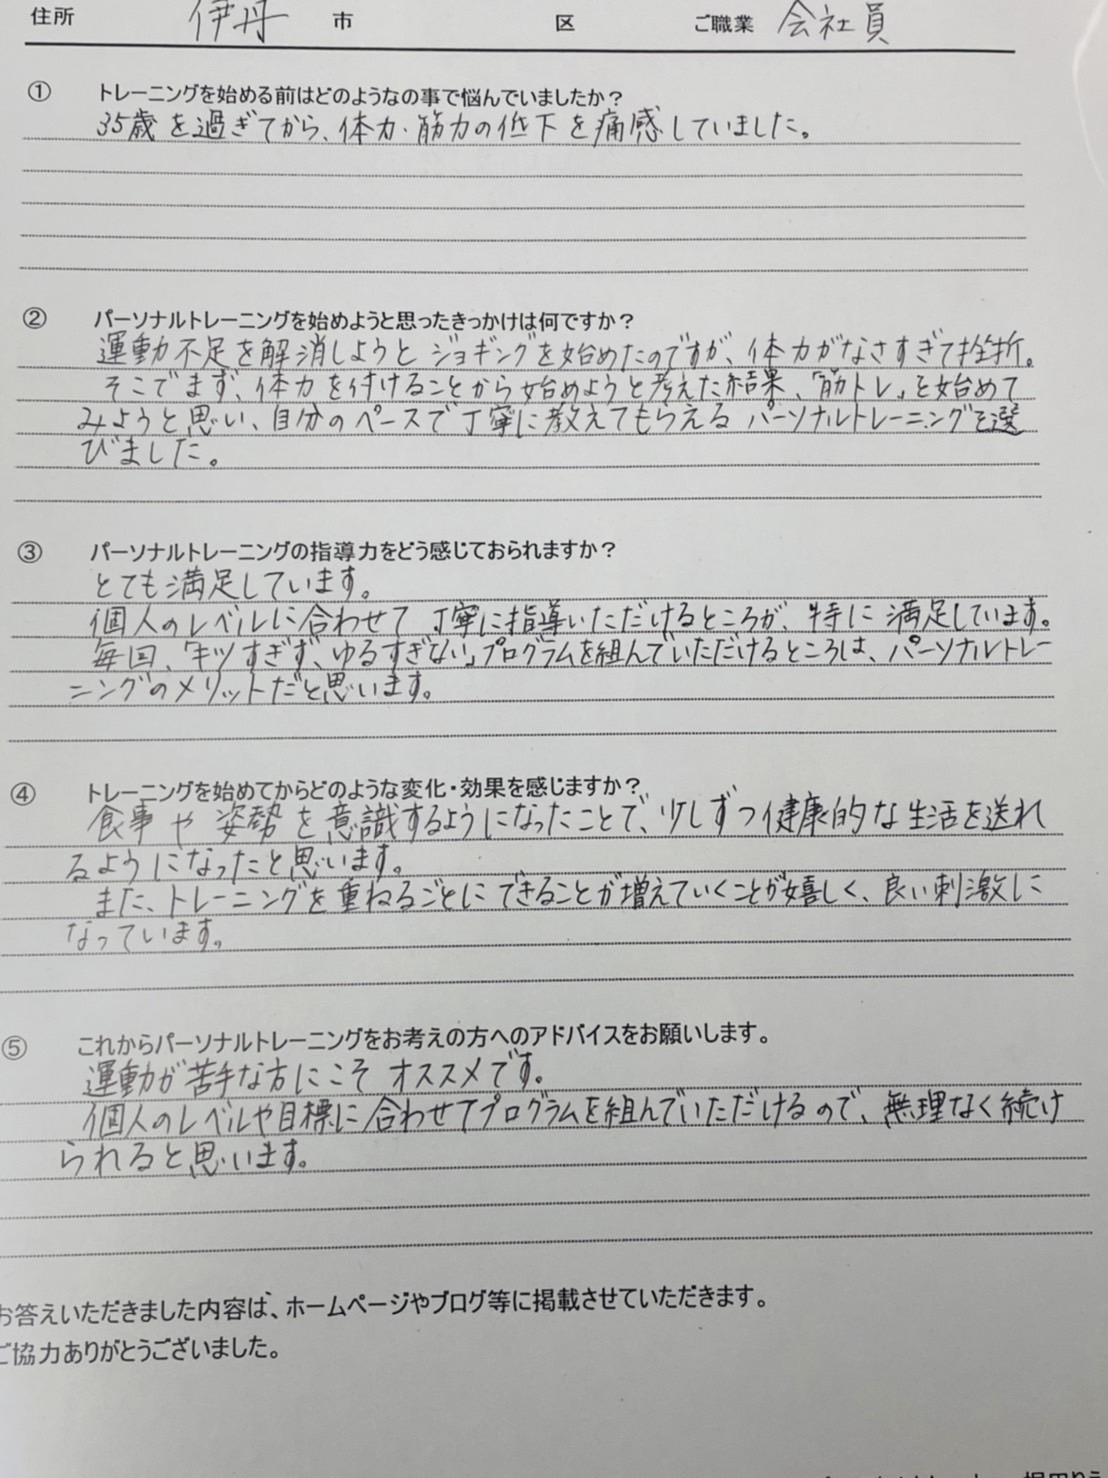 住所 伊丹 市 区 ご職業 会社員
① トレーニングを始める前はどのようなの事で悩んでいましたか？
35歳を過ぎてから、体力・筋力の低下を痛感していました。
② パーソナルトレーニングを始めようと思ったきっかけは何ですか？
運動不足を解消しようとジョギングを始めたのですが、体力がなさすぎて挫折。
そこでまず、体力を付けることから始めようと考えた結果、「筋トレ」を始めて
みようと思い、自分のペースで丁寧に教えてもらえるパーソナルトレーニングを選
びました。
③ パーソナルトレーニングの指導力をどう感じておられますか？
とても満足しています。
個人のレベルに合わせて丁寧に指導いただけるところが、特に満足しています。
毎回、「キツすぎず、ゆるすぎない」プログラムを組んでいただけるところは、パーソナルトレー
ニングのメリットだと思います。
④ トレーニングを始めてからどのような変化・効果を感じますか？
食事や姿勢を意識するようになったことで、少しずつ健康的な生活を送れ
るようになったと思います。
また、トレーニングを重ねるごとにできることが増えていくことが嬉しく、良い刺激に
なっています。
⑤ これからパーソナルトレーニングをお考えの方へのアドバイスをお願いします。
運動が苦手な方にこそオススメです。
個人のレベルや目標に合わせてプログラムを組んでいただけるので、無理なく続け
られると思います。
お答えいただきました内容は、ホームページやブログ等に掲載させていただきます。
ご協力ありがとうございました。